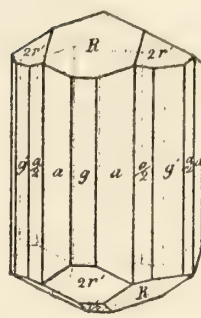 2r' R 2r'
g a/2 a g a a/2 g' a/2
2r' R